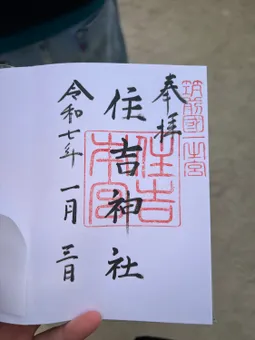 奉拝
筑前國一之宮
住吉神社
住吉本宮
令和七年一月三日